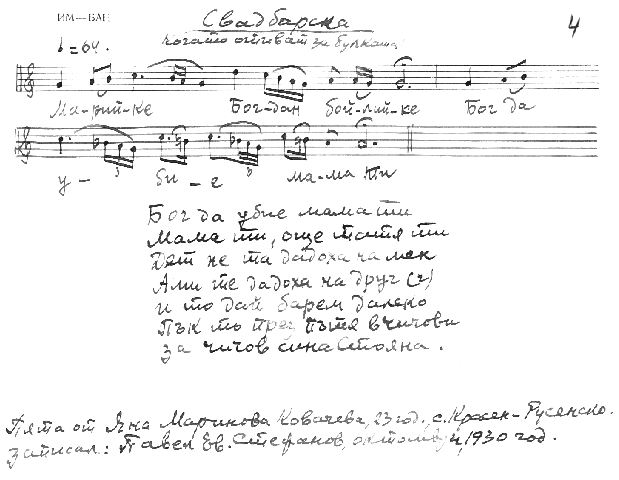 ИМ—БАН
Свадбарска
4
когато отиват за булката
♩=64.
Ма-рий-ке Бог-дан бой-лий-ке Бог да
3 3
у - би - е ма-ма ти
Бог да убие мама ти
Мама ти, още татя ти
Дят не та дадоха на мен
Ами те дадоха на друг (2)
и то дай барем далеко
Пък то през пътя в чичови
за чичов сина Стояна.
Пята от Яна Маринова Ковачева, 23 год., с. Красен-Русенско.
Записал: Павел Ев. Стефанов, октомври, 1930 год.